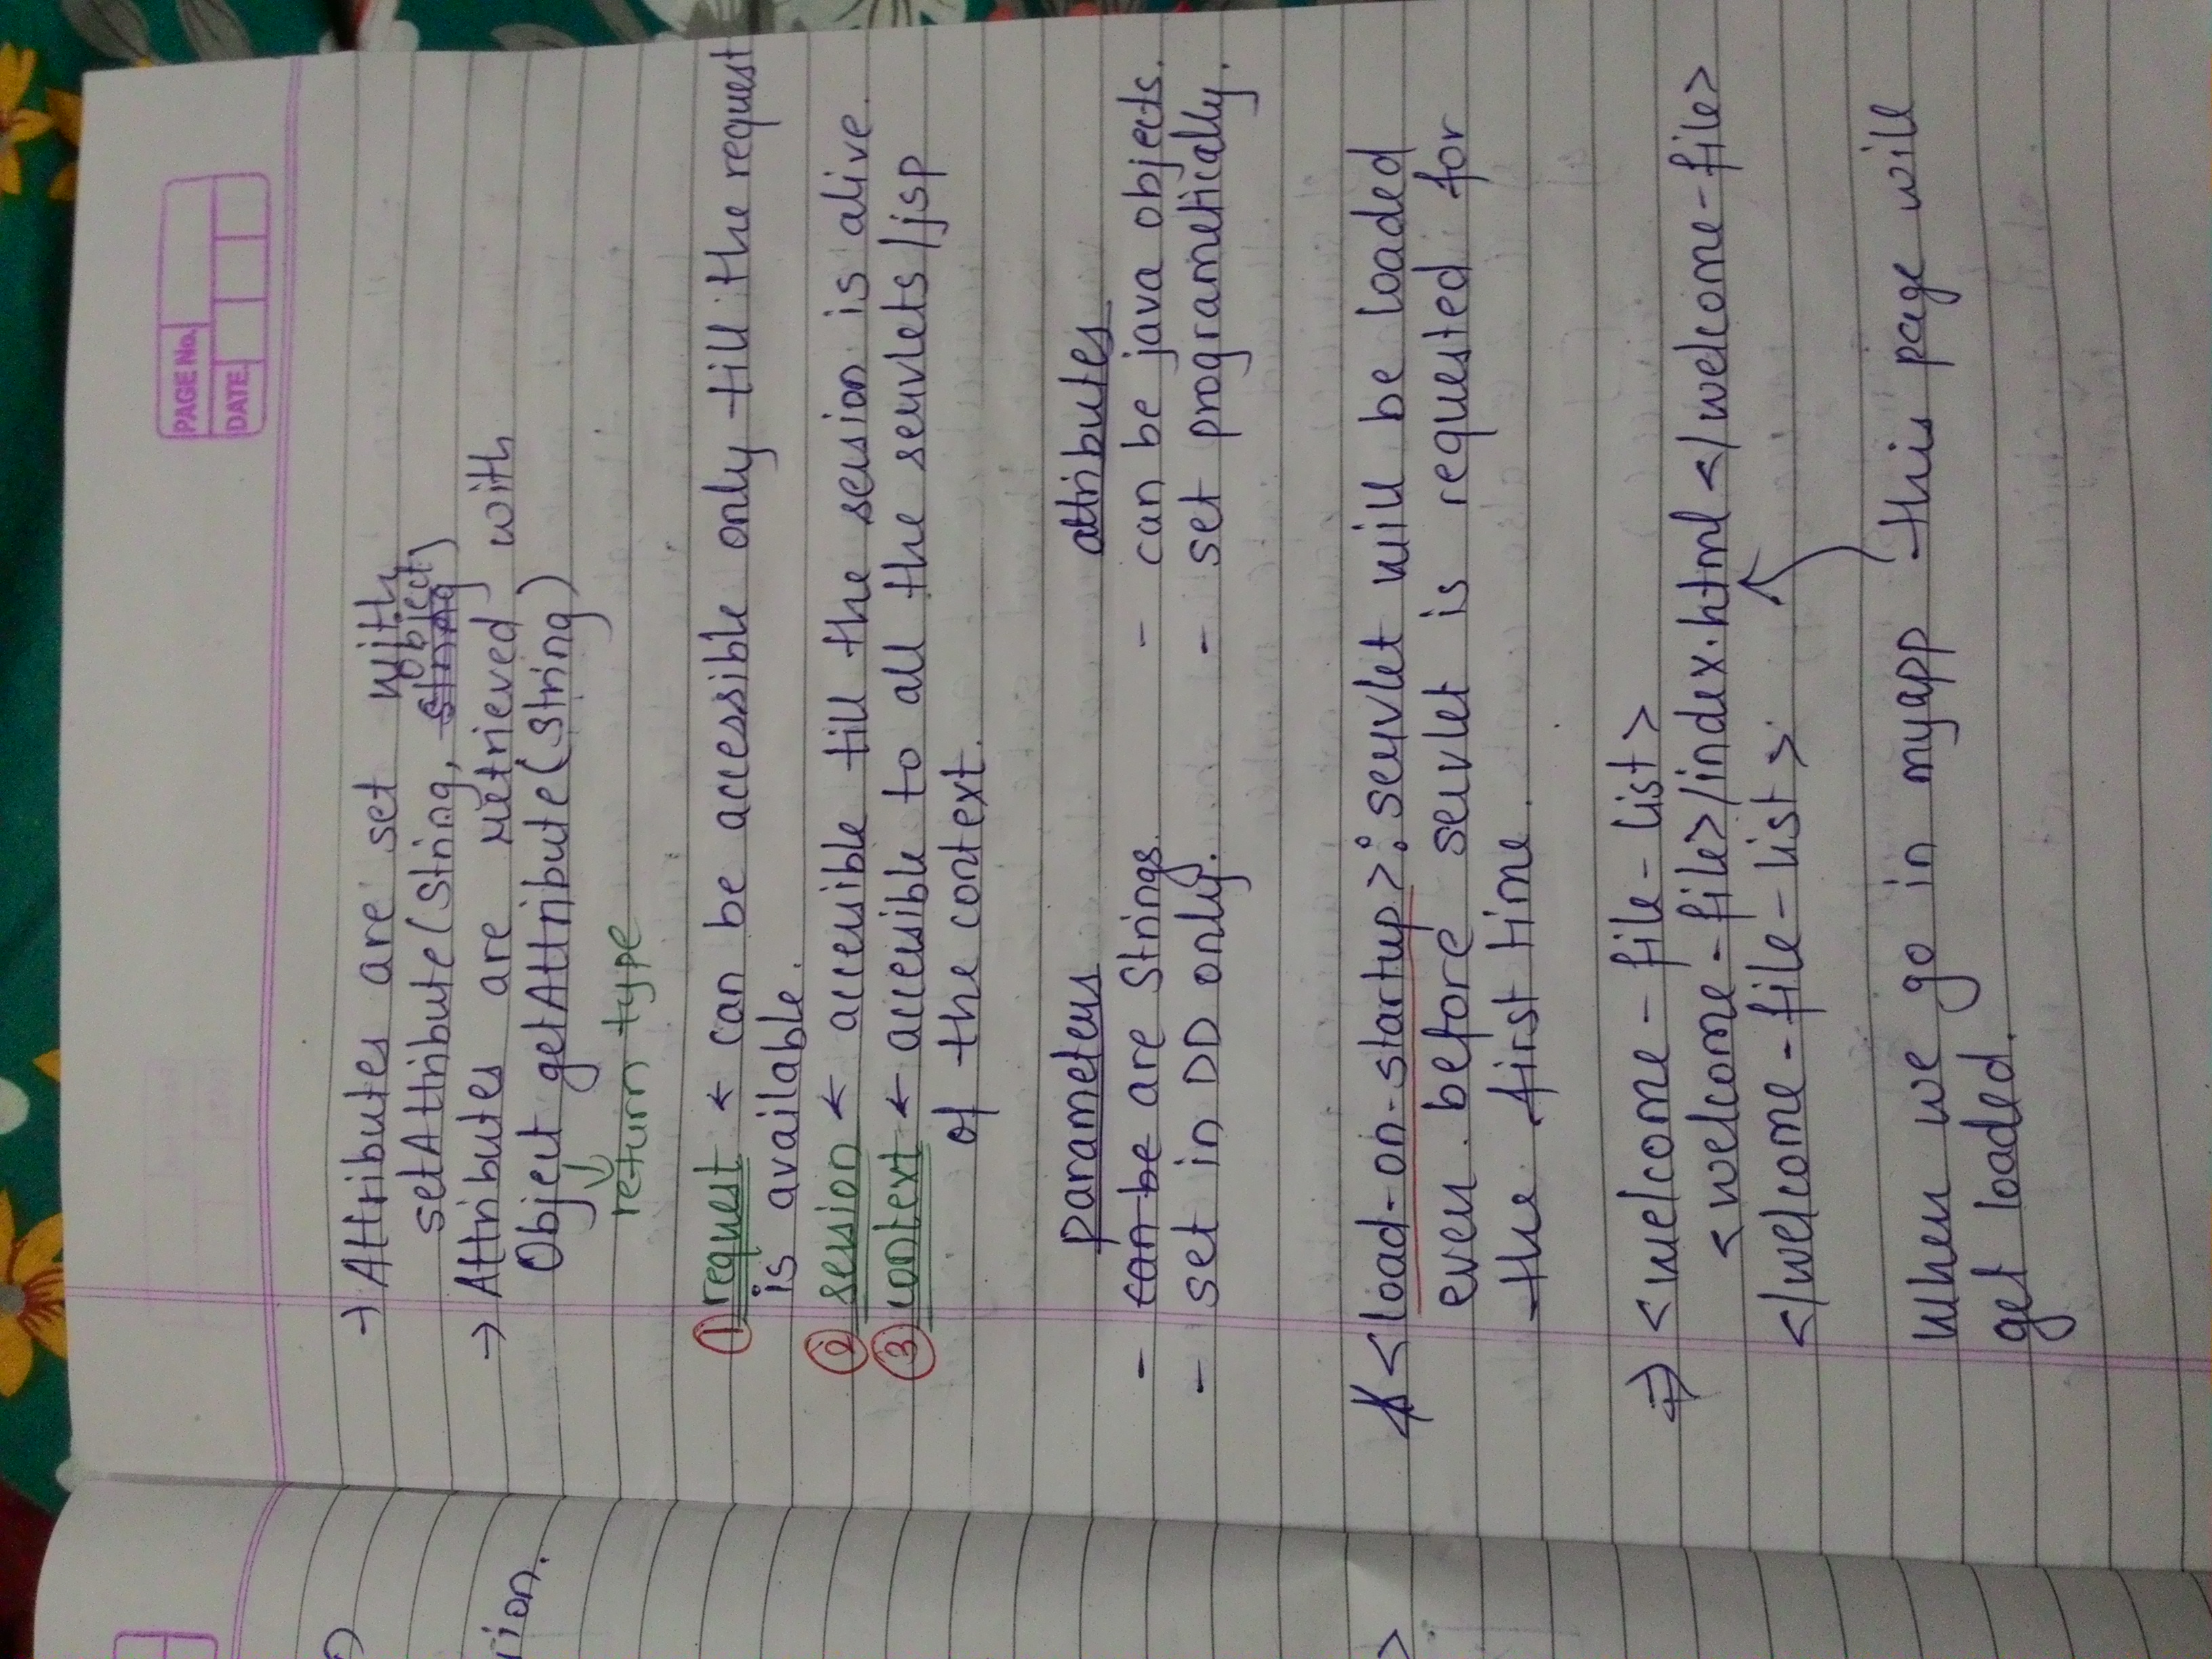 PAGE No.
DATE
rion.
→ Attributes are set with
setAttribute(String, string Object)
→ Attributes are retrieved with
Object getAttribute(String)
return type
① request ← can be accessible only till the request
is available.
② session ← accessible till the session is alive.
③ context ← accessible to all the servlets/jsp
of the context.
parameters attributes
- can be are Strings. - can be java objects.
- set in DD only. - set programetically.
* <load-on-startup>: servlet will be loaded
even before servlet is requested for
the first time.
⇒ <welcome-file-list>
<welcome-file>/index.html</welcome-file>
</welcome-file-list>
When we go in myapp this page will
get loaded.